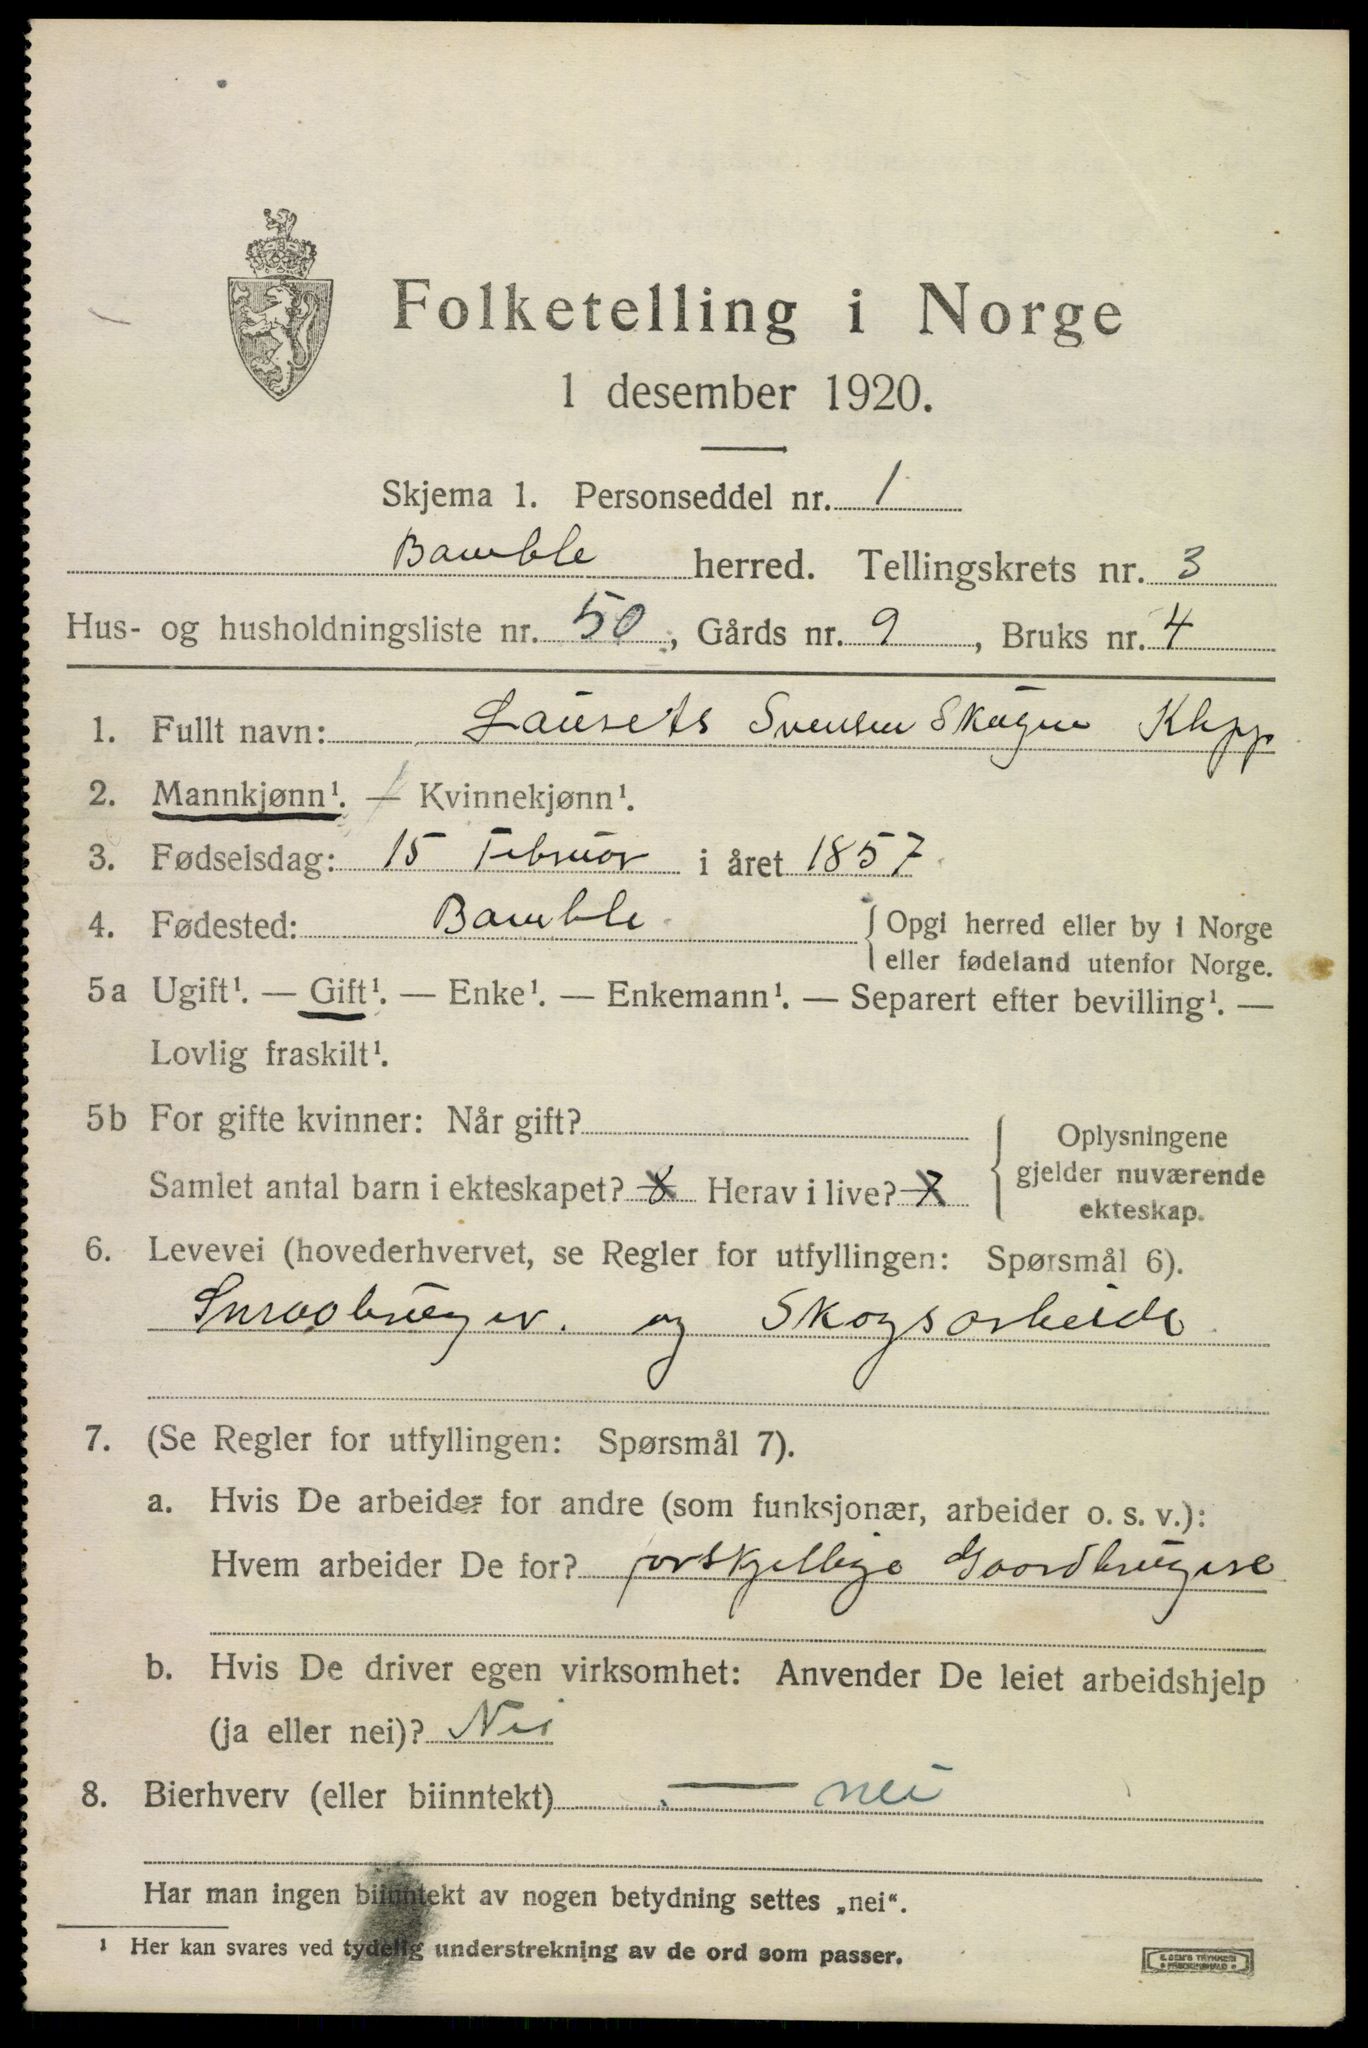 Folketelling i Norge
1 desember 1920.
Skjema 1. Personseddel nr. 1
Bamble herred. Tellingskrets nr. 3
Hus- og husholdningsliste nr. 50, Gårds nr. 9, Bruks nr. 4
1. Fullt navn: Svensen
2. Mannkjønn¹. — Kvinnekjønn¹.
3. Fødselsdag: 15 Februar i året 1857
4. Fødested: Bamble { Opgi herred eller by i Norge
eller fødeland utenfor Norge.
5a Ugift¹. — Gift¹. — Enke¹. — Enkemann¹. — Separert efter bevilling¹. —
Lovlig fraskilt¹.
5b For gifte kvinner: Når gift? { Oplysningene
gjelder nuværende
ekteskap.
Samlet antal barn i ekteskapet? 8 Herav i live? 7
6. Levevei (hovederhvervet, se Regler for utfyllingen: Spørsmål 6).
Smaabruger. og Skogsarbeide
7. (Se Regler for utfyllingen: Spørsmål 7).
a. Hvis De arbeider for andre (som funksjonær, arbeider o. s. v.):
Hvem arbeider De for? forskjellige Gaardbrugere
b. Hvis De driver egen virksomhet: Anvender De leiet arbeidshjelp
(ja eller nei)? Nei
8. Bierhverv (eller biinntekt) — nei
Har man ingen biinntekt av nogen betydning settes „nei“.
¹ Her kan svares ved tydelig understrekning av de ord som passer.